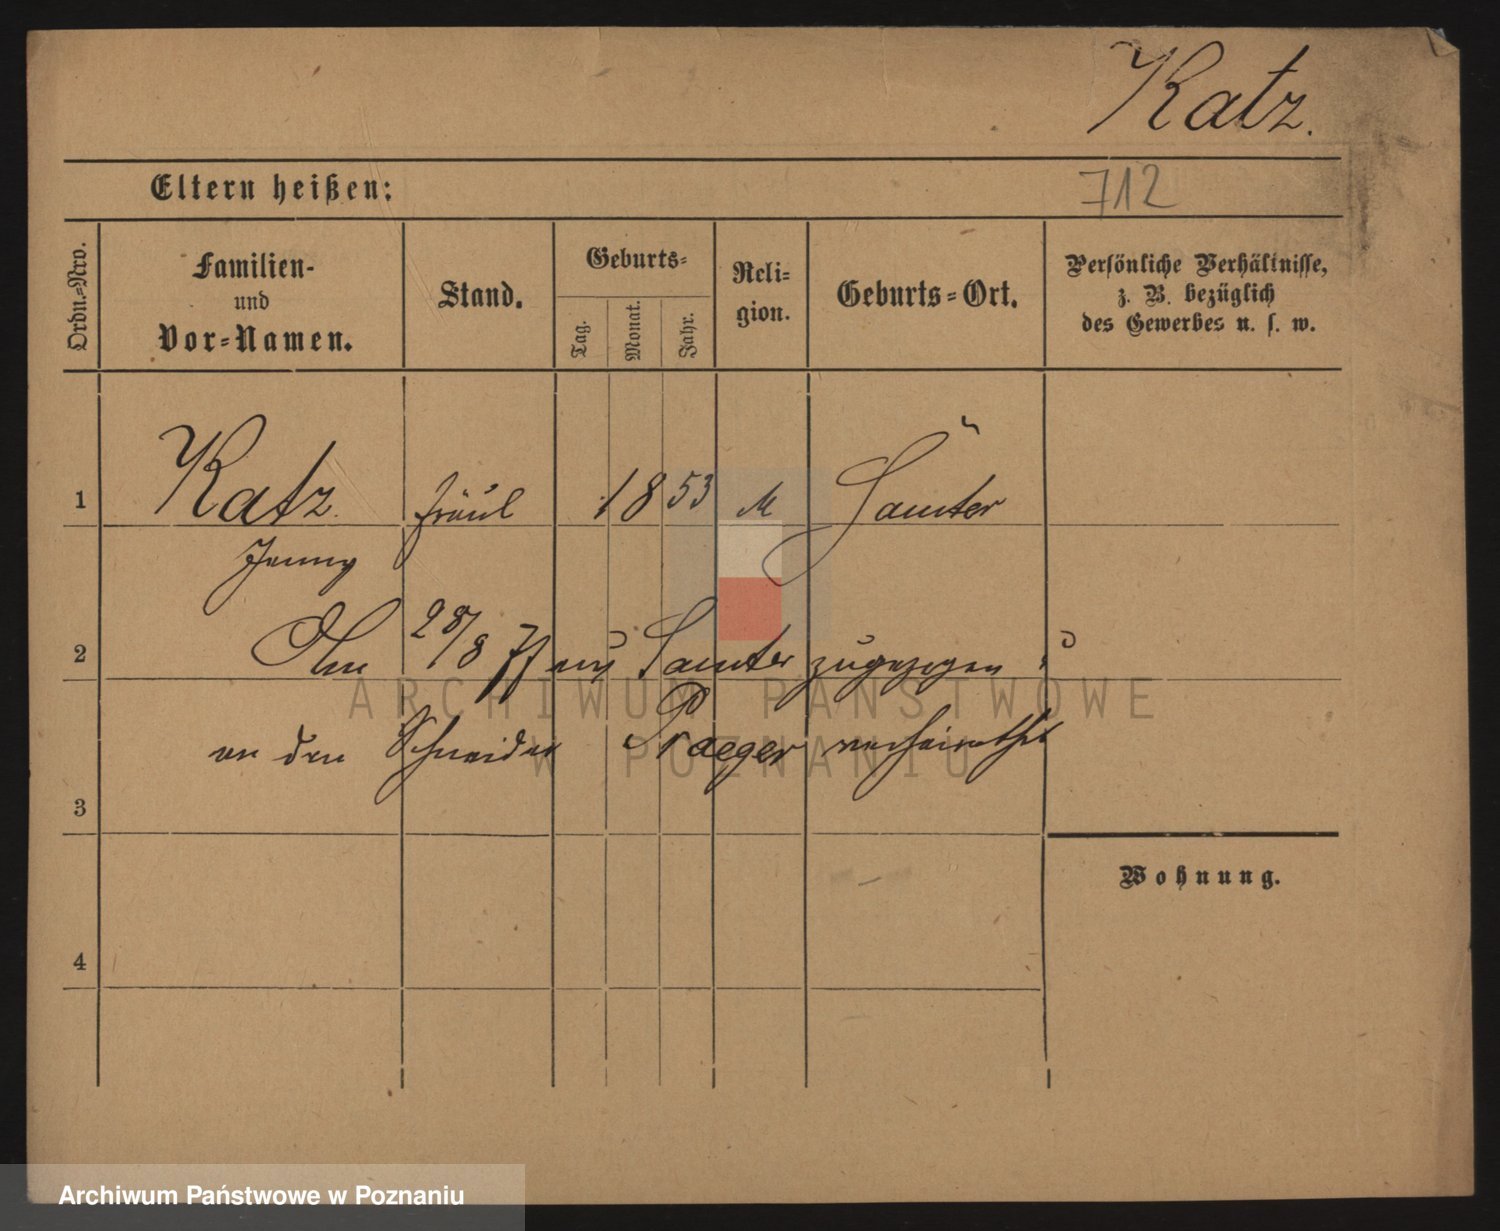 Katz.
Eltern heißen:
712
Ordn.-Nro.
Familien-
und
Vor-Namen.
Stand.
Geburts-
Tag.
Monat.
Jahr.
Reli-
gion.
Geburts-Ort.
Persönliche Verhältnisse,
z. B. bezüglich
des Gewerbes u. s. w.
1
Katz. Fräul 1853 M Samter
Jenny
2
Am 28/8 77 aus Samter zugezogen u
an den Schneider Praeger verheirathet
3
Wohnung.
4
ARCHIWUM PAŃSTWOWE
W POZNANIU
Archiwum Państwowe w Poznaniu